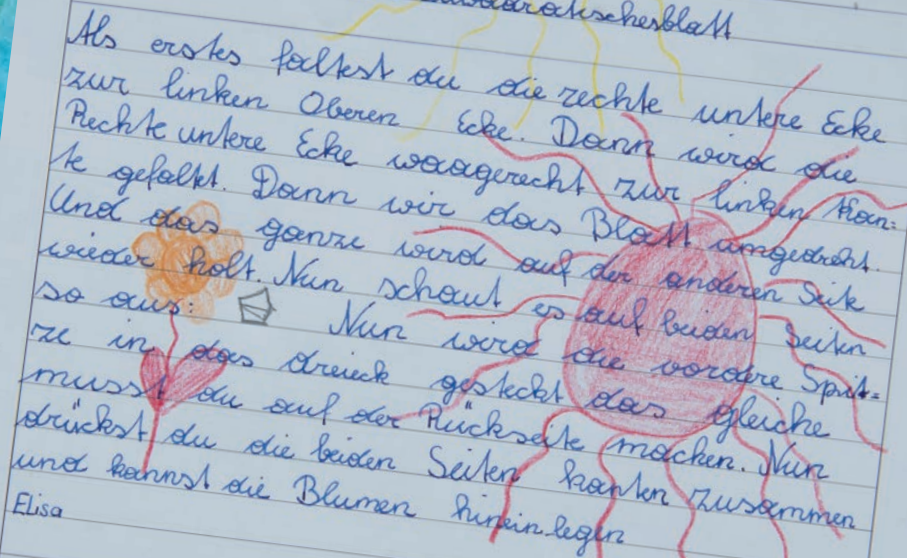 Als erstes faltest du die rechte untere Ecke
zur linken Oberen Ecke. Dann wird die
Rechte untere Ecke waagerecht zur linken Kan=
te gefalkt. Dann wir das Blatt umgedreht.
Und das ganze wird auf der anderen Seite
wieder holt. Nun schaut es auf beiden Seiten
so aus: Nun wird die vordere Spit=
ze in das dreieck gesteckt das gleiche
musst du auf der Rückseite machen. Nun
drückst du die beiden Seiten kanten zusammen
und kannst die Blumen hinein legen
Elisa